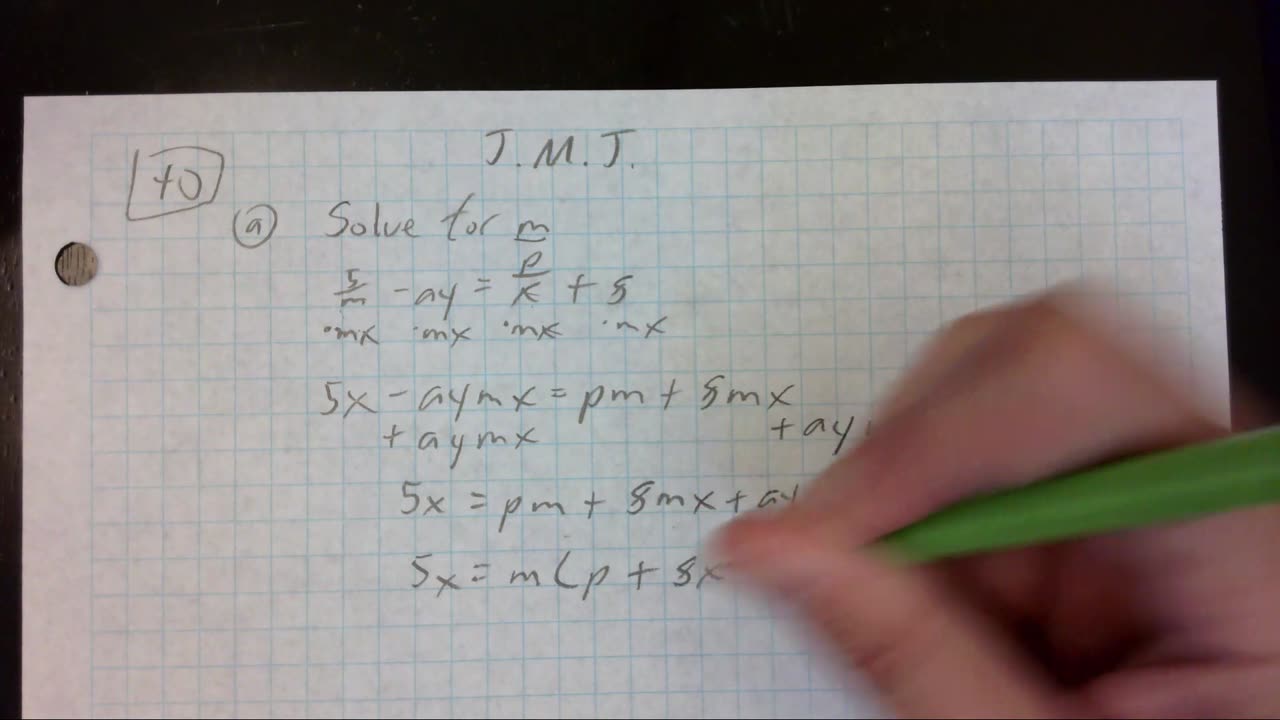 J.M.J.
70
(a) Solve for m
5/m - ay = p/x + §
·mx ·mx ·mx ·mx
5x - aymx = pm + §mx
+ aymx + ay
5x = pm + §mx + ay
5x = m(p + §x